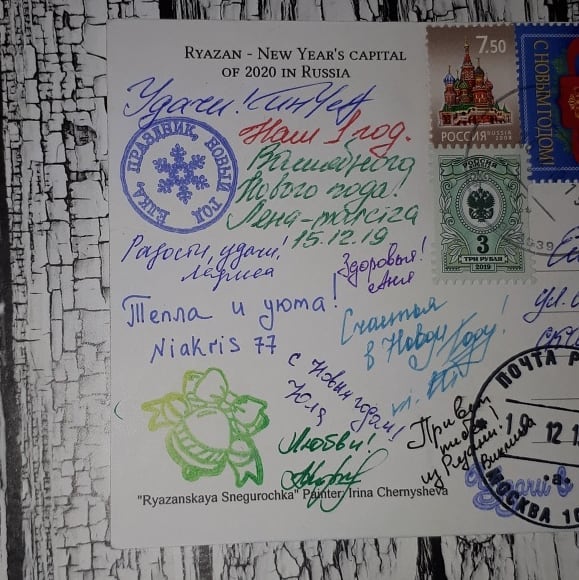 RYAZAN - NEW YEAR'S CAPITAL
OF 2020 IN RUSSIA
Удачи!
ЕЛКА, ПРАЗДНИК, НОВЫЙ ГОД
Наш 1 год.
Волшебного
Нового года!
Лена-
15.12.19
Радости, удачи!
Лариса
Здоровья!
Аня
Тепла и уюта!
Niakris 77
Счастья
в Новом Году!
с Новым годом!
Юля
Любви!
Привет
из Рязани!
"Ryazanskaya Snegurochka" Painter: Irina Chernysheva
7.50
РОССИЯ RUSSIA
2009
С НОВЫМ ГОДОМ!
3
ТРИ РУБЛЯ
2019
ул.
ПОЧТА Р
19 12 1
.а.
МОСКВА 10
Удачи в